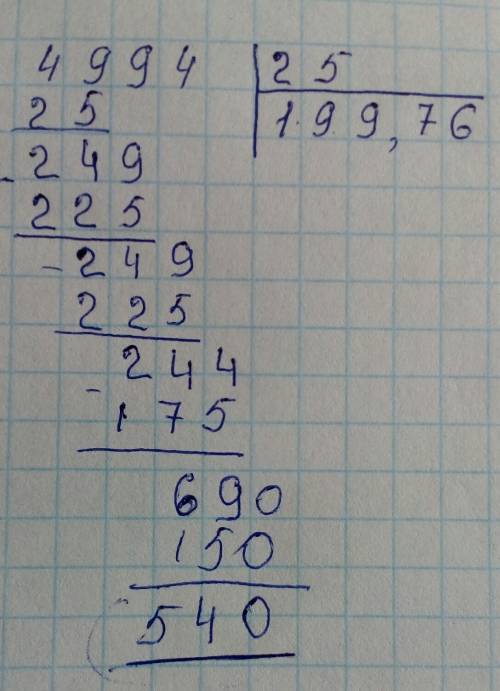 4994 | 25
25 | 199,76
- 249
225
- 249
225
- 244
175
690
150
540